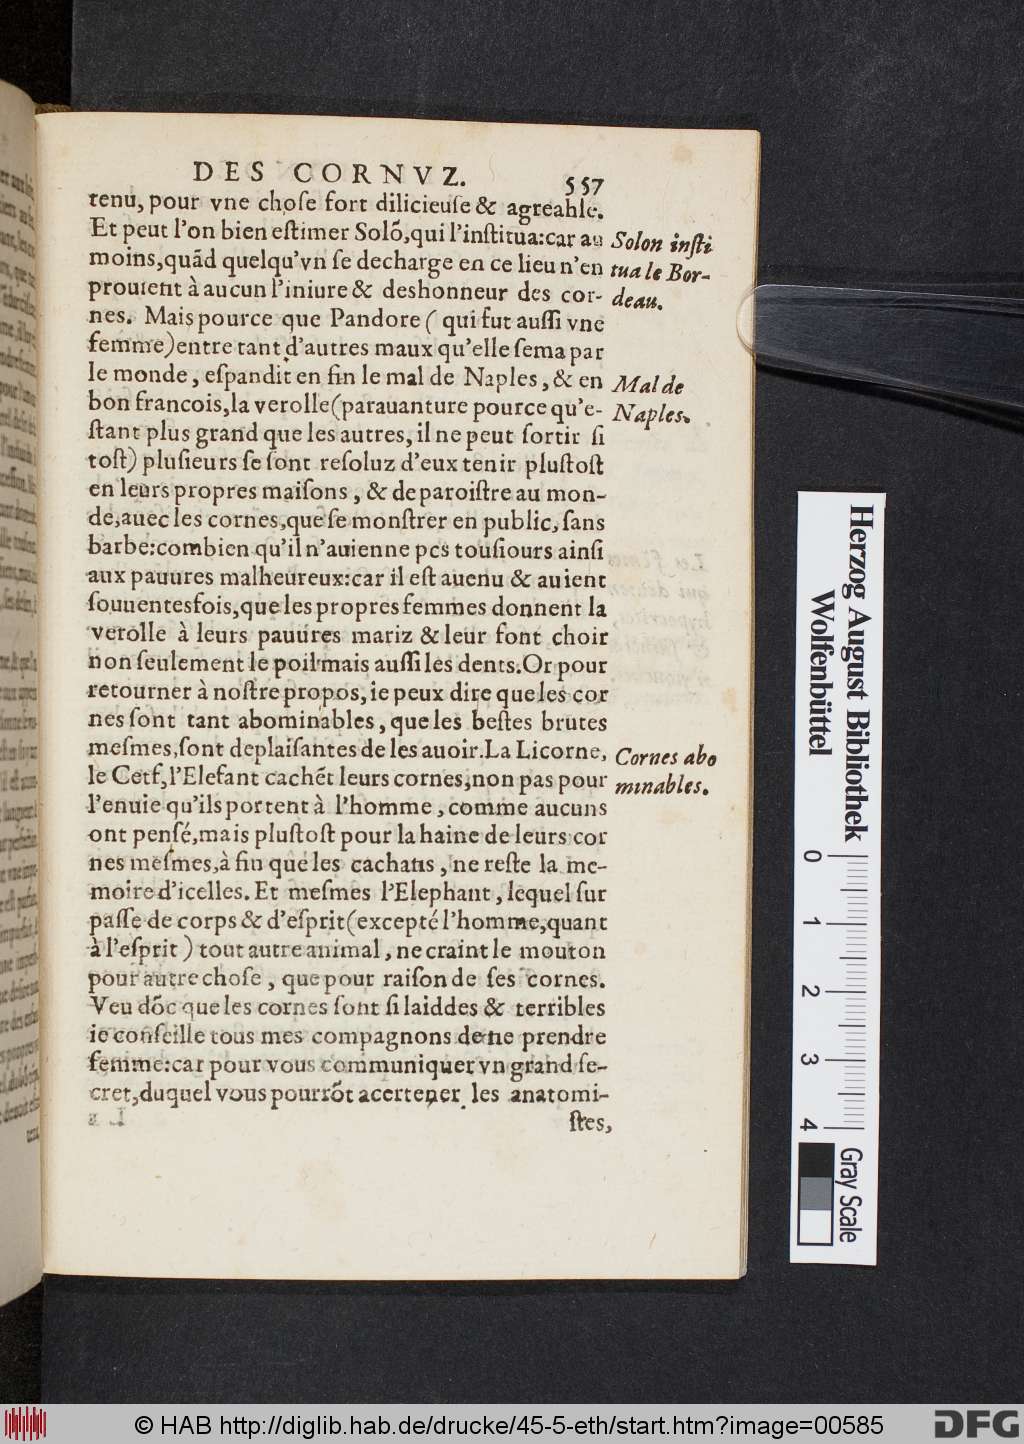 DES CORNVZ. 557
tenu, pour vne chose fort dilicieuse & agreable.
Et peut l'on bien estimer Solõ, qui l'institua: car au
Solon insti
moins, quãd quelqu'vn se decharge en ce lieu n'en
tua le Bor-
prouient à aucun l'iniure & deshonneur des cor-
deau.
nes. Mais pource que Pandore ( qui fut aussi vne
femme) entre tant d'autres maux qu'elle sema par
le monde, espandit en fin le mal de Naples, & en
Mal de
bon francois, la verolle (parauanture pource qu'e-
Naples.
stant plus grand que les autres, il ne peut sortir si
tost) plusieurs se sont resoluz d'eux tenir plustost
en leurs propres maisons, & de paroistre au mon-
de, auec les cornes, que se monstrer en public, sans
barbe: combien qu'il n'auienne pcs tousiours ainsi
aux pauures malheureux: car il est auenu & auient
souuentesfois, que les propres femmes donnent la
verolle à leurs pauures mariz & leur font choir
non seulement le poil mais aussi les dents. Or pour
retourner à nostre propos, ie peux dire que les cor
nes sont tant abominables, que les bestes brutes
mesmes, sont deplaisantes de les auoir. La Licorne,
Cornes abo
le Cerf, l'Elefant cachẽt leurs cornes, non pas pour
minables.
l'enuie qu'ils portent à l'homme, comme aucuns
ont pensé, mais plustost pour la haine de leurs cor
nes mesmes, à fin que les cachans, ne reste la me-
moire d'icelles. Et mesmes l'Elephant, lequel sur
passe de corps & d'esprit (excepté l'homme, quant
à l'esprit ) tout autre animal, ne craint le mouton
pour autre chose, que pour raison de ses cornes.
Veu dõc que les cornes sont si laiddes & terribles
ie conseille tous mes compagnons de ne prendre
femme: car pour vous communiquer vn grand se-
cret, duquel vous pourrõt acertener les anatomi-
stes,
Herzog August Bibliothek
Wolfenbüttel
0 1 2 3 4
Gray Scale
© HAB http://diglib.hab.de/drucke/45-5-eth/start.htm?image=00585
DFG